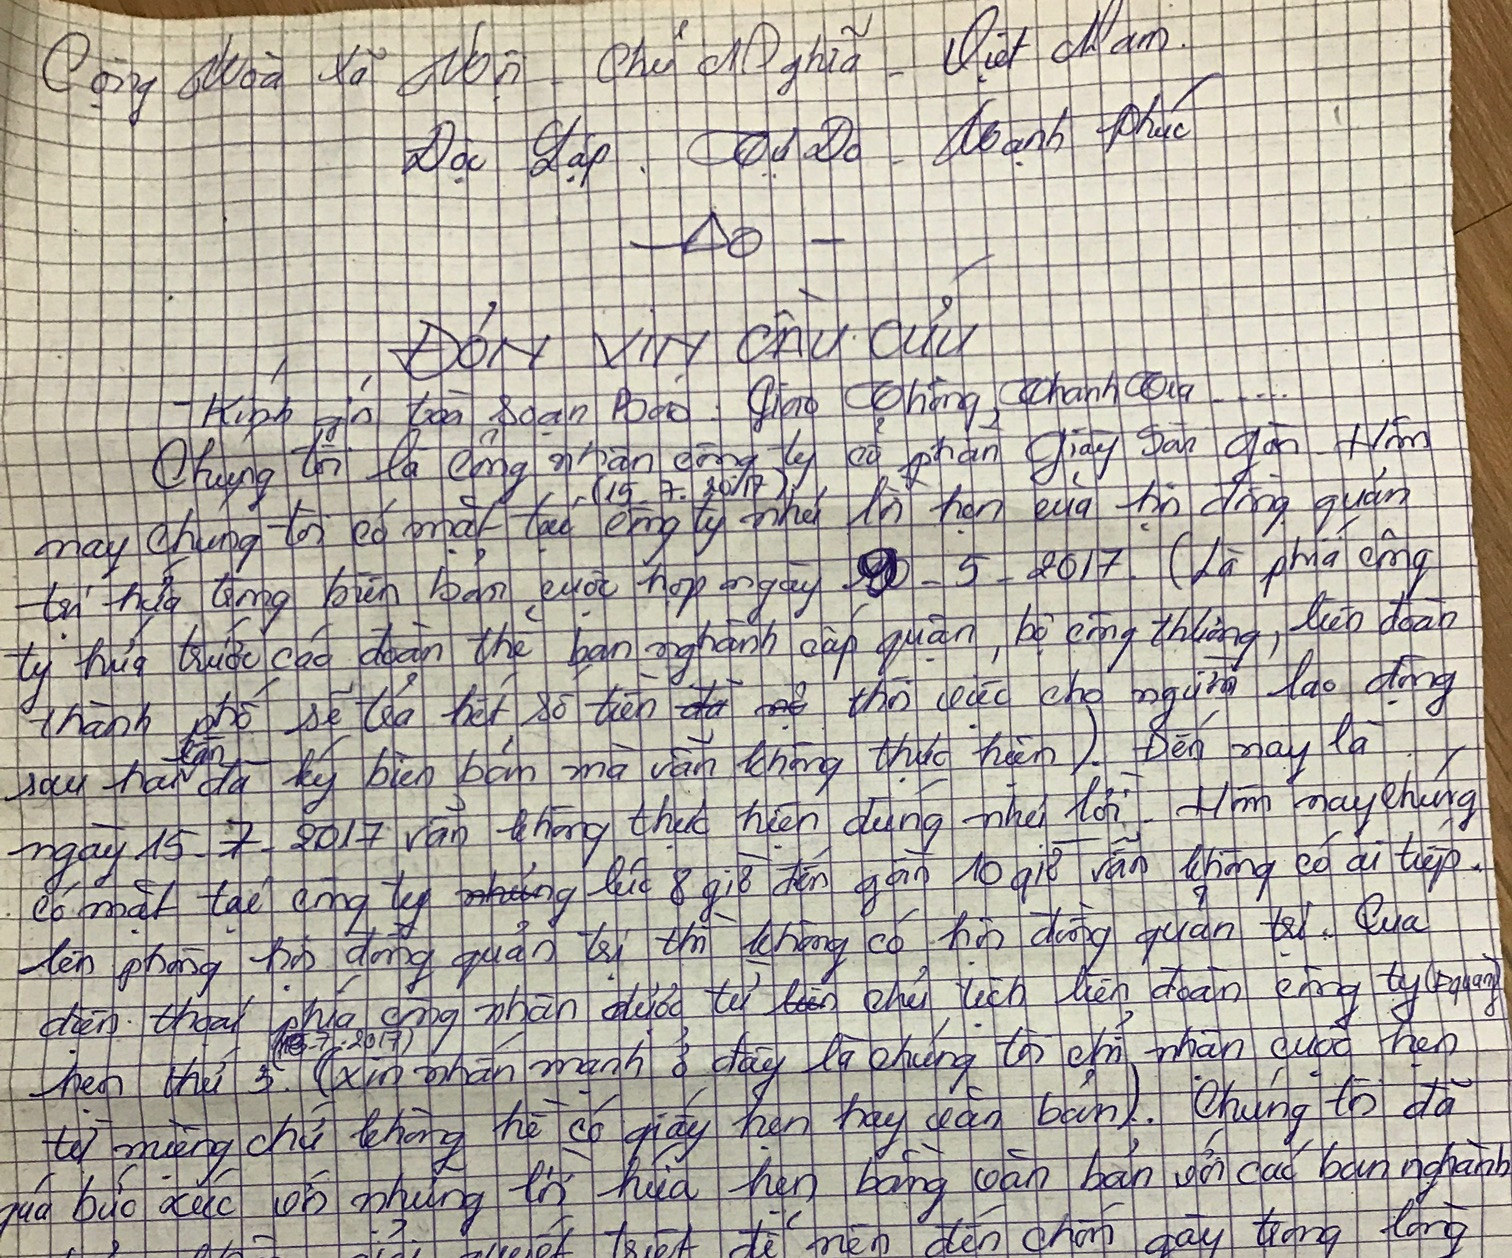 Cộng Hoà Xã Hội - Chủ Nghĩa - Việt Nam.
Độc Lập - Tự Do - Hạnh Phúc
ĐƠN XIN CẦU CỨU
- Kính gửi toà soạn Báo. Giao Thông, Thanh Tra ......
Chúng tôi là công nhân công ty cổ phần Giày Sài gòn. Hôm
(15.7.2017)
nay chúng tôi có mặt tại công ty như lời hẹn của hội đồng quản
trị hứa trong biên bản cuộc họp ngày 20-5-2017. (Là phía công
ty hứa trước các đoàn thể ban nghành cấp quận, bộ công thương, liên đoàn
thành phố sẽ trả hết số tiền đã thôi việc cho người lao động
lần
sau hai đã ký biên bản mà vẫn không thực hiện). Đến nay là
ngày 15-7-2017 vẫn không thực hiện đúng như lời. Hôm nay chúng
có mặt tại công ty lúc 8 giờ đến gần 10 giờ vẫn không có ai tiếp.
lên phòng hội đồng quản trị thì không có hội đồng quản trị. Qua
điện thoại phía công nhân được từ chủ tịch liên đoàn công ty
hẹn thứ 3. (xin nhấn mạnh ở đây là chúng tôi chỉ nhận cuộc hẹn
từ miệng chứ không hề có giấy hẹn hay văn bản). Chúng tôi đã
quá bức xúc với những lời hứa hẹn bằng văn bản với các ban nghành
triệt để nên đến chốn gây trong lòng